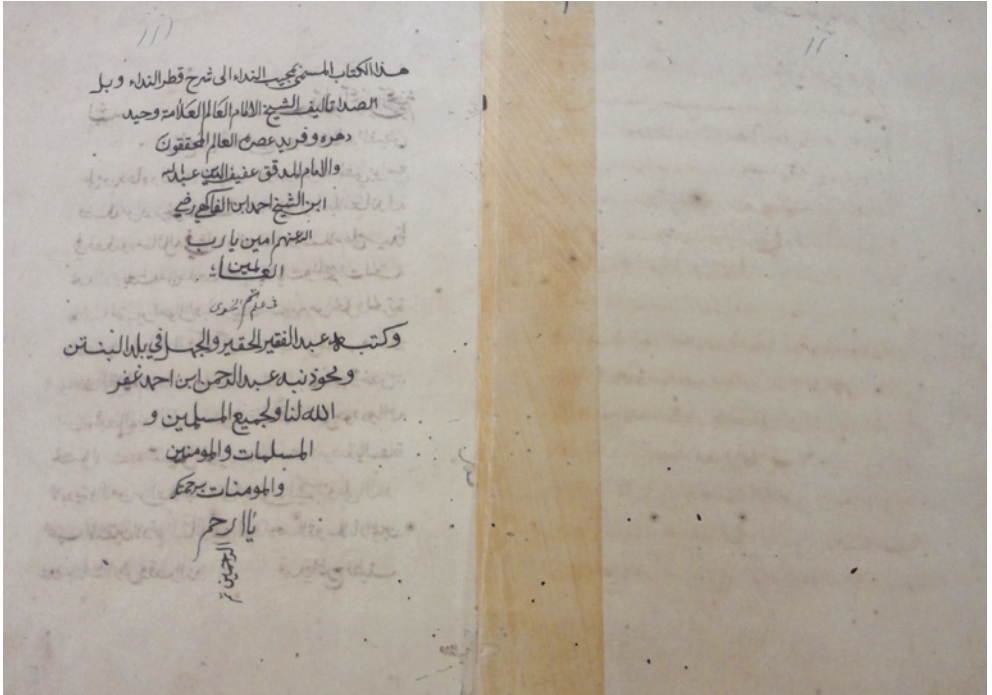 هذا الكتاب المسمى بمجيب النداء الى شرح قطر النداء وبل
الصدا تاليف الشيخ الامام العالم العلامة وحيد
دهره وفريد عصره العالم المحققون
والامام المدقق عفيف الدين عبد الله
ابن الشيخ احمد ابن الفاكهي رضي
الله عنهم امين يا رب
العالمين
وكتبه عبد الفقير الحقير والجهل في بلد البنتن
عبد الرحمن ابن احمد غفر
الله لنا ولجميع المسلمين و
المسلمات والمومنين
والمومنات برحمتك
يا ارحم
الرحمين